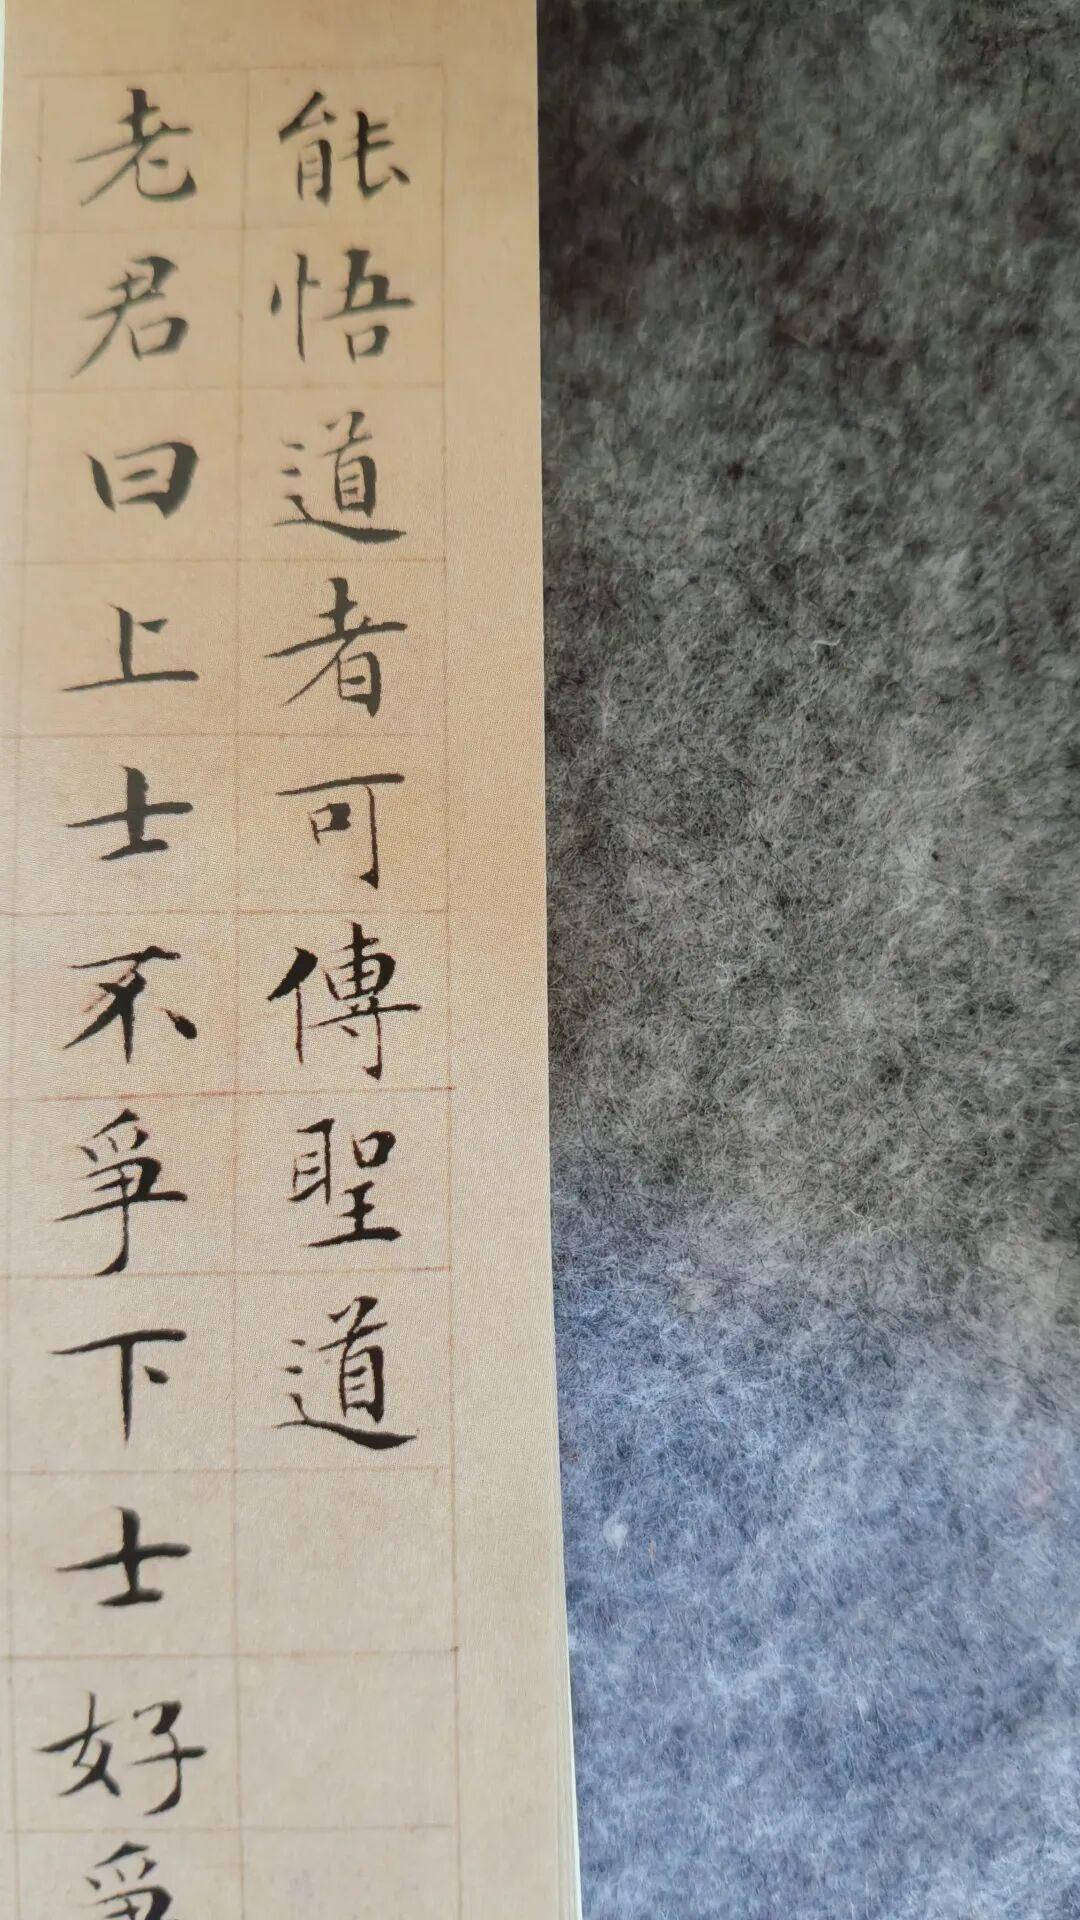 能悟道者可傳聖道
老君曰上士不爭下士好爭